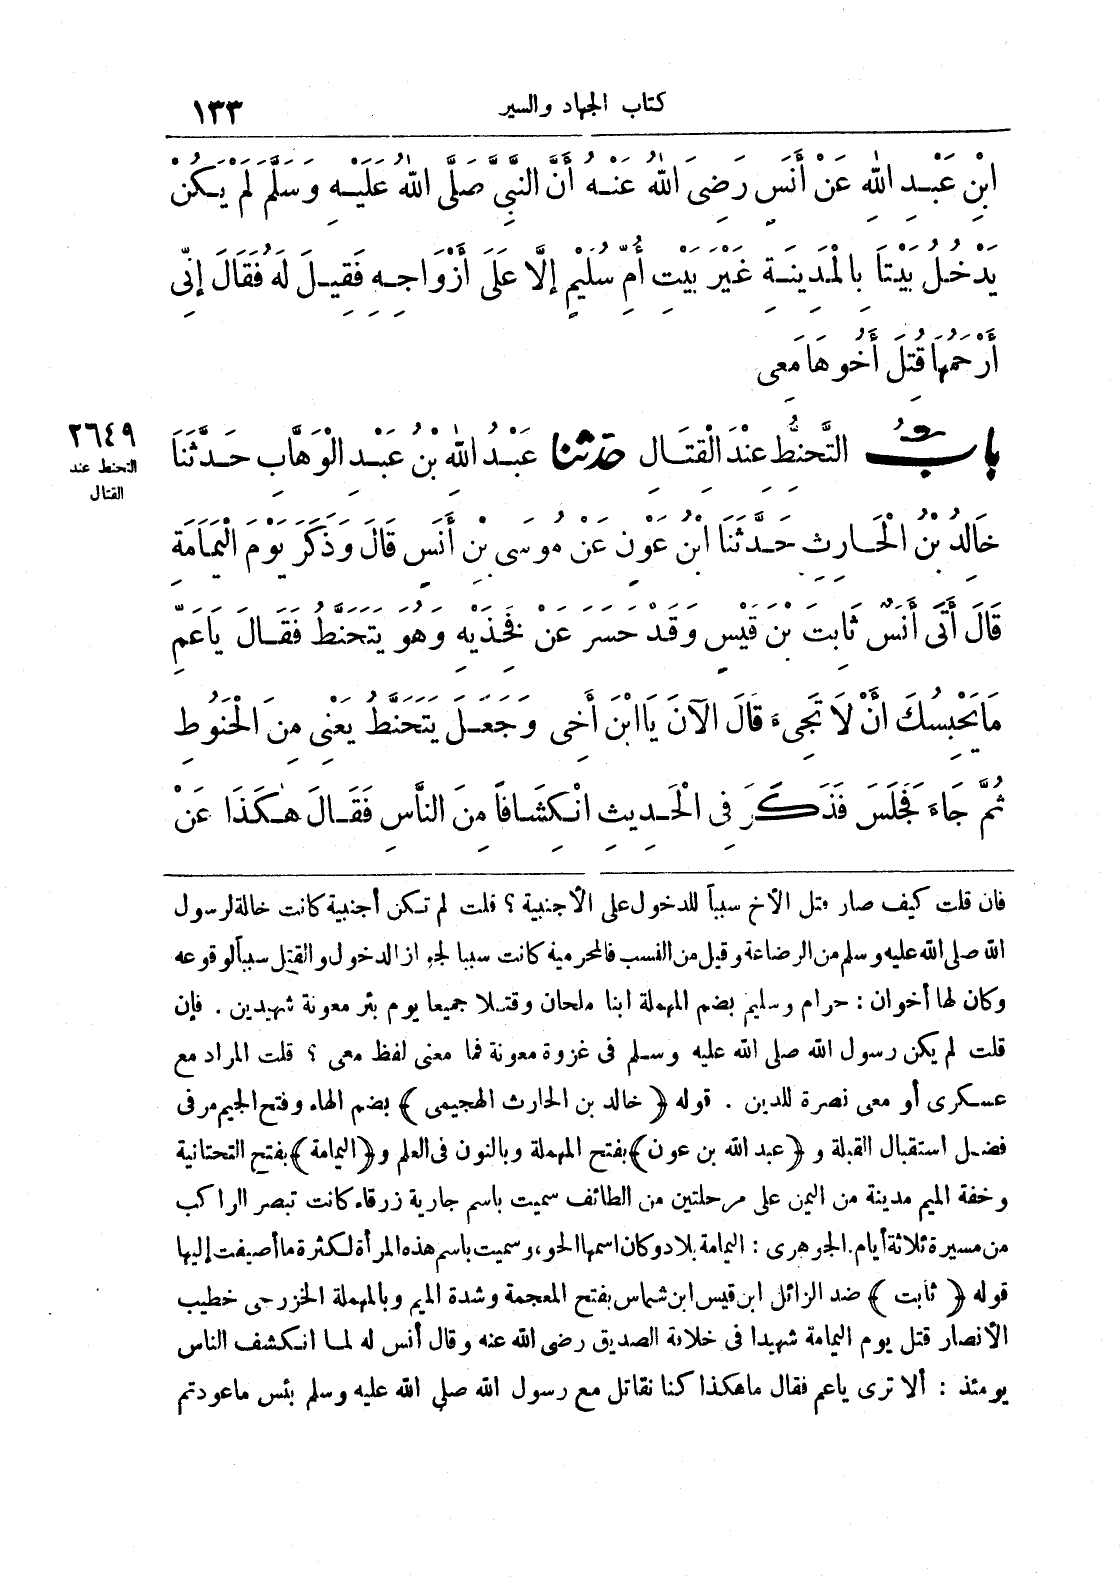 كتاب الجهاد والسير ١٣٣
ابْنِ عَبْدِ اللهِ عَنْ أَنَسٍ رَضِىَ اللهُ عَنْهُ أَنَّ النَّبِىَّ صَلَّى اللهُ عَلَيْهِ وَسَلَّمَ لَمْ يَكُنْ
يَدْخُلُ بَيْتًا بِالْمَدِينَةِ غَيْرَ بَيْتِ أُمِّ سُلَيْمٍ إِلَّا عَلَى أَزْوَاجِهِ فَقِيلَ لَهُ فَقَالَ إِنِّى
أَرْحَمُهَا قُتِلَ أَخُوهَا مَعِى
بابُ التَّحَنُّطِ عِنْدَ الْقِتَالِ حدثنا عَبْدُ اللهِ بْنُ عَبْدِ الْوَهَّابِ حَدَّثَنَا
٢٦٤٩
التحنط عند
القتال
خَالِدُ بْنُ الْحَارِثِ حَدَّثَنَا ابْنُ عَوْنٍ عَنْ مُوسَى بْنِ أَنَسٍ قَالَ وَذَكَرَ يَوْمَ الْيَمَامَةِ
قَالَ أَتَى أَنَسٌ ثَابِتَ بْنَ قَيْسٍ وَقَدْ حَسَرَ عَنْ فَخِذَيْهِ وَهُوَ يَتَحَنَّطُ فَقَالَ يَا عَمِّ
مَا يَحْبِسُكَ أَنْ لَا تَجِىءَ قَالَ الآنَ يَا ابْنَ أَخِى وَجَعَلَ يَتَحَنَّطُ يَعْنِى مِنَ الْحَنُوطِ
ثُمَّ جَاءَ فَجَلَسَ فَذَكَرَ فِى الْحَدِيثِ انْكِشَافًا مِنَ النَّاسِ فَقَالَ هٰكَذَا عَنْ
فان قلت كيف صار قتل الأخ سبباً للدخول على الأجنبية ؟ قلت لم تكن أجنبية كانت خالة لرسول
الله صلى الله عليه وسلم من الرضاعة وقيل من النسب فالمحرمية كانت سببا لجواز الدخول والقتل سبباً لوقوعه
وكان لها أخوان : حرام وسليم بضم المهملة ابنا ملحان وقتلا جميعا يوم بئر معونة شهيدين . فإن
قلت لم يكن رسول الله صلى الله عليه وسلم فى غزوة معونة فما معنى لفظ معى ؟ قلت المراد مع
عسكرى أو معى نصرة للدين . قوله ﴿ خالد بن الحارث الهجيمى ﴾ بضم الهاء وفتح الجيم مر فى
فضل استقبال القبلة و ﴿عبد الله بن عون﴾ بفتح المهملة وبالنون فى العلم و﴿اليمامة﴾ بفتح التحتانية
وخفة الميم مدينة من اليمن على مرحلتين من الطائف سميت باسم جارية زرقاء كانت تبصر الراكب
من مسيرة ثلاثة أيام. الجوهرى : اليمامة بلاد وكان اسمها الجو، وسميت باسم هذه المرأة لكثرة ما أضيفت إليها
قوله ﴿ ثابت ﴾ ضد الزائل ابن قيس ابن شماس بفتح المعجمة وشدة الميم وبالمهملة الخزرجى خطيب
الأنصار قتل يوم اليمامة شهيدا فى خلافة الصديق رضى الله عنه وقال أنس له لما انكشف الناس
يومئذ : ألا ترى ياعم فقال ماهكذا كنا نقاتل مع رسول الله صلى الله عليه وسلم بئس ماعودتم